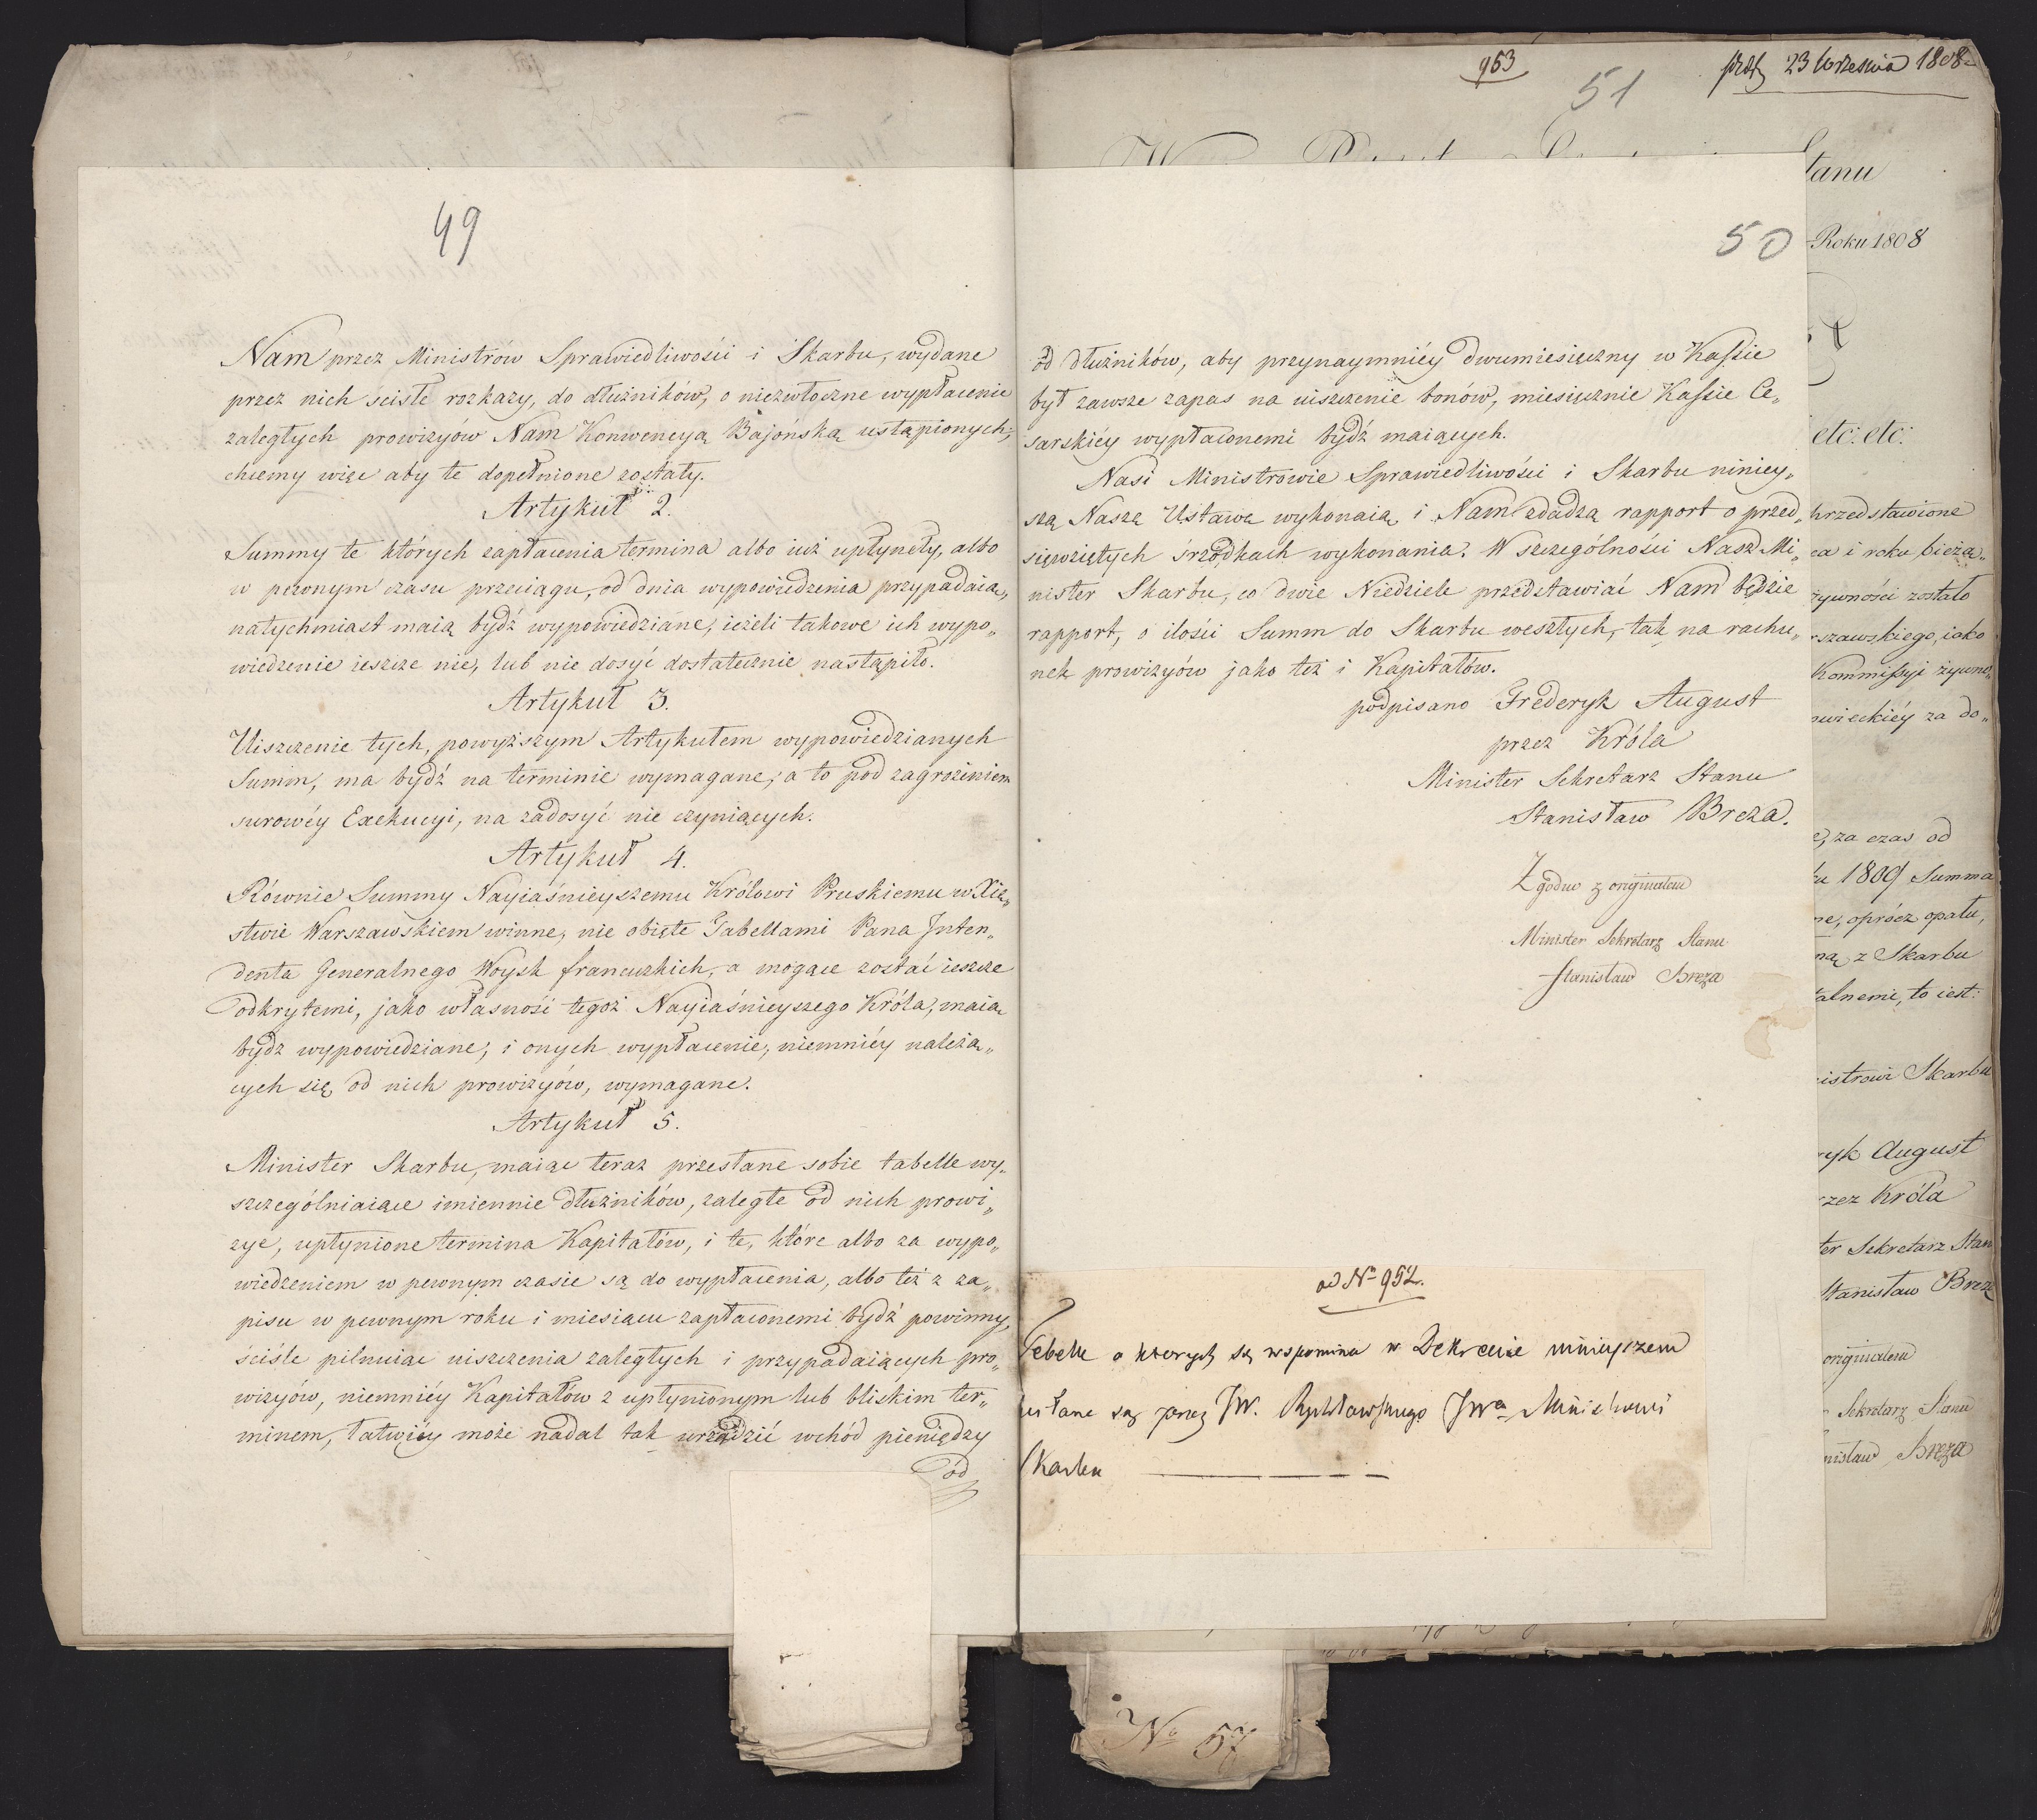 49
Nam przez Ministrów Sprawiedliwości i Skarbu, wydane
przez nich ścisłe rozkazy, do dłużników, o niezwłoczne wypłacenie
zaległych prowizyów Nam Konwencyą Bajońską ustąpionych;
chcemy więc aby te dopełnione zostały.
Artykuł 2.
Summy te których zapłacenia termina albo iuż upłynęły, albo
w pewnym czasu przeciągu, od dnia wypowiedzenia przypadaią,
natychmiast maią bydź wypowiedziane, ieżeli takowe ich wypo„
wiedzenie ieszcze nie, lub nie dosyć dostatecznie nastąpiło.
Artykuł 3.
Uiszczenie tych, powyższym Artykułem wypowiedzianych
Summ, ma bydź na terminie wymagane, a to pod zagrożeniem
surowéy Exekucyi, na zadosyć nie czyniących.
Artykuł 4.
Równie Summy Nayiaśnieyszemu Królowi Pruskiemu w Xię„
stwie Warszawskiem winne, nie obięte Tabellami Pana Inten„
denta Generalnego Woysk francuzkich, a mogące zostać ieszcze
odkrytemi, jako własność tegoż Nayiaśnieyszego Króla, maią
bydz wypowiedziane, i onych wypłacenie, niemniéy należą„
cych się od nich prowizyów, wymagane.
Artykuł 5.
Minister Skarbu, maiąc teraz przesłane sobie tabelle wy„
szczególniaiące imiennie dłużników, zaległe od nich prowi„
zye, upłynione termina Kapitałów, i te, które albo za wypo„
wiedzeniem w pewnym czasie są do wypłacenia, albo też z za„
pisu w pewnym roku i miesiącu zapłaconemi bydź powinny,
ściśle pilnuiąc uiszczenia zaległych i przypadaiących pro„
wizyów, niemniéy Kapitałów z upłynionym lub bliskim ter„
minem, łatwiéy może nadal tak urządzić wchód pieniędzy
od
50
od dłużników, aby przynaymniéy dwumiesięczny w Kassie
był zawsze zapas na uiszczenie bonów, miesięcznie Kassie Ce„
sarskiéy wypłaconemi bydź maiących.
Nasi Ministrowie Sprawiedliwości i Skarbu niniey„
szą Naszą Ustawę wykonaią, i Nam zdadzą rapport o przed„
sięwziętych śrzodkach wykonania. W szczególności Nasz Mi„
nister Skarbu, co dwie Niedziele przedstawiać Nam będzie
rapport, o ilości Summ do Skarbu weszłych, tak na rachu„
nek prowizyów jako też i Kapitałów.
podpisano Frederyk August
przez Króla
Minister Sekretarz Stanu
Stanisław Breza.
Zgodno z originałem
Minister Sekretarz Stanu
Stanisław Breza
ad No 952.
Tabelle o ktorych się wspomina w Dekrecie ninieyszem
JW. JWu Ministrowi
Skarbu
No 57
953
51
23 Września 1808
Stanu
Roku 1808
etc: etc:
przedstawione
ca i roku bieżą„
żywności zostało
rszawskiego, iako
Kommissyi żywno„
wieckiéy za do„
za czas od
ku 1809 Summa
ne, oprócz opału,
z Skarbu
talnemi, to iest:
istrowi Skarbu
ryk August
rzez Króla
ter Sekretarz Stanu
Stanisław Breza
originałem
Sekretarz Stanu
nisław Breza